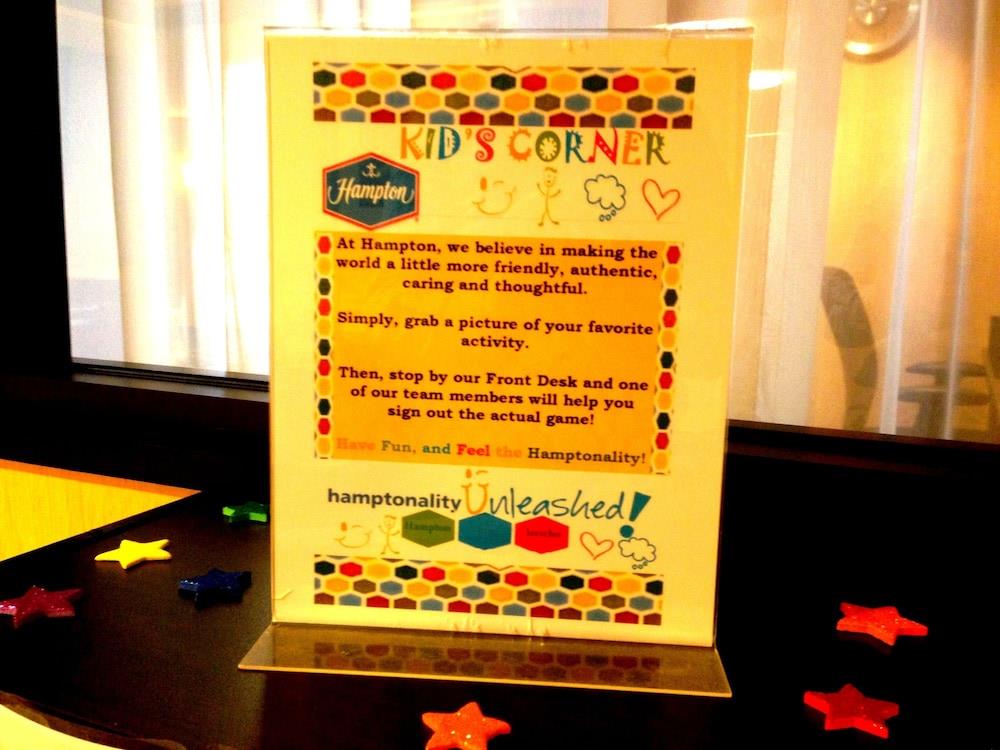 KID'S CORNER
Hampton
At Hampton, we believe in making the
world a little more friendly, authentic,
caring and thoughtful.
Simply, grab a picture of your favorite
activity.
Then, stop by our Front Desk and one
of our team members will help you
sign out the actual game!
Have Fun, and Feel the Hamptonality!
hamptonality Unleashed!
Hampton